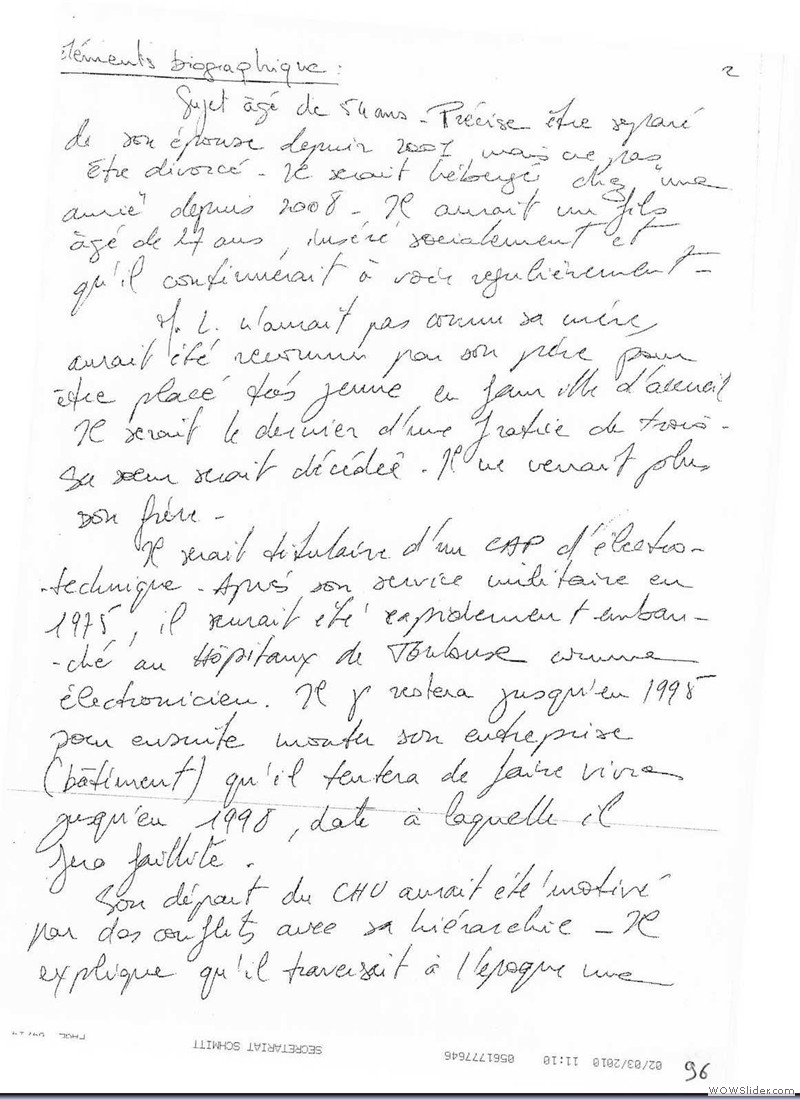 éléments biographique :
2
Sujet âgé de 54 ans - Précise être séparé
de son épouse depuis 2007 mais ne pas
être divorcé - Il serait hébergé chez "une
amie" depuis 2008 - Il aurait un fils
âgé de 27 ans, inséré socialement et
qu'il continuerait à voir regulièrement -
M. L. n'aurait pas connu sa mère,
aurait été reconnu par son père pour
être placé très jeune en famille d'accueil
Il serait le dernier d'une fratrie de trois -
Sa soeur serait décédée - Il ne verrait plus
son frère -
Il serait titulaire d'un CAP d'électro-
-technique - Après son service militaire en
1975, il aurait été rapidement embau-
-ché au Hôpitaux de Toulouse comme
électronicien. Il y restera jusqu'en 1995
pour ensuite monter son entreprise
(bâtiment) qu'il tentera de faire vivre
jusqu'en 1998, date à laquelle il
fera faillite.
Son départ du CHU aurait été motivé
par des conflits avec sa hiérarchie - Il
explique qu'il traversait à l'époque une
02/03/2010 11:10 0561777646 SECRETARIAT SCHMITT
96
www.WOWSlider.com